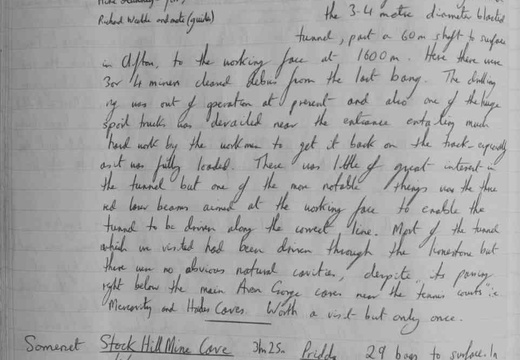 Richard Webble and mate (guide)
the 3-4 metre diameter blasted
tunnel, past a 60m shaft to surface
in Clifton, to the working face at 1600m. Here there were
3 or 4 miners cleared debris from the last bang. The drilling
rig was out of operation at present and also one of the huge
spoil trucks was derailed near the entrance entailing much
hard work by the workmen to get it back on the track - especially
as it was fully loaded. There was little of great interest in
the tunnel but one of the more notable things was the three
red laser beams aimed at the working face to enable the
tunnel to be driven along the correct line. Most of the tunnel
which we visited had been driven through the limestone but
there were no obvious natural cavities, despite its passing
right below the main Avon Gorge caves near the tennis courts i.e
Mercavity and Hades Caves. Worth a visit but only once.
Somerset Stock Hill Mine Cave 3hr 25m Priddy 29 bags to surface. In